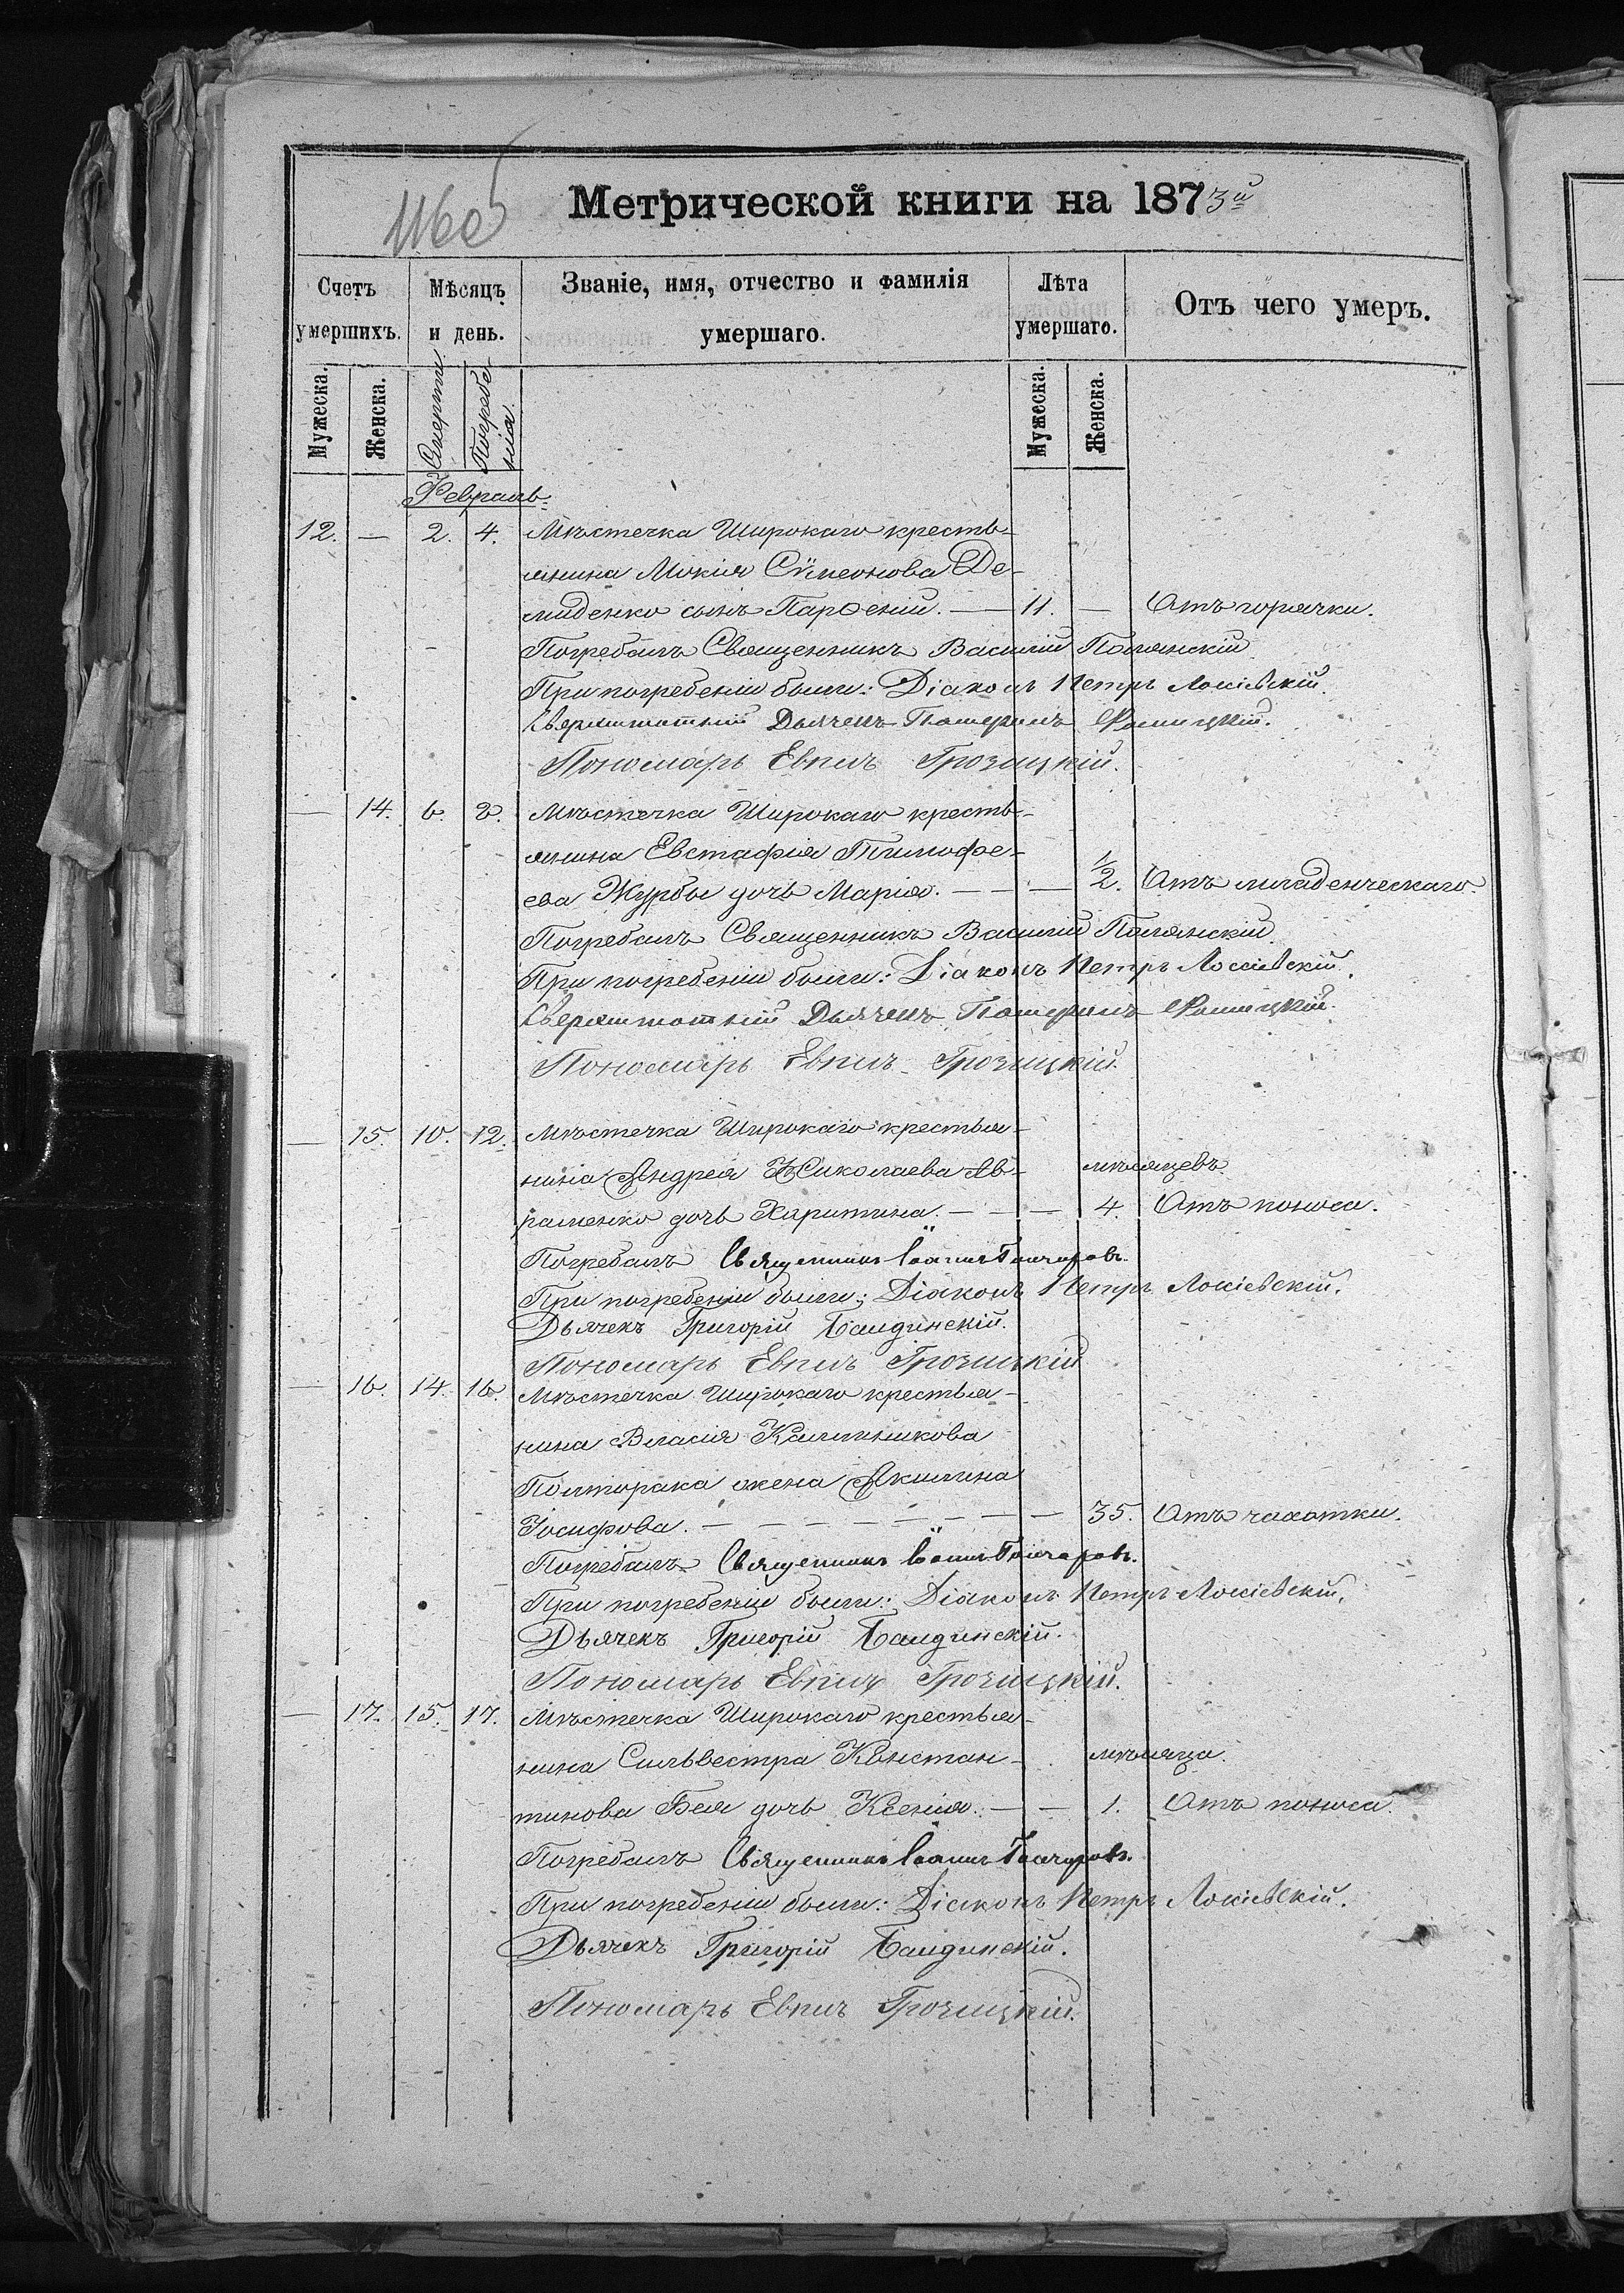 1160
Метрической книги на 1873й
Счетъ умершихъ.
Мѣсяцъ и день.
Званіе, имя, отчество и фамилія умершаго.
Лѣта умершаго.
Отъ чего умеръ.
Мужеска. Женска. Смерти Погребенія. Мужеска. Женска.
Февраль.
12. — 2. 4. Мѣстечка Широкаго кресть-
янина Мокія Сѷмеонова Де-
миденко сынъ Парѳеній. — 11. — Отъ горячки.
Погребалъ Священникъ Василій Полянскій
При погребеніи были: Діаконъ Петръ Лосіевскій.
Сверхштатный Дьячекъ
Пономарь Евпиъ Грозицкій.
— 14. 6. 8. Мѣстечка Широкаго кресть-
янина Евстафія Тимофе-
ева Журбы дочь Марія. — — — 1/2. Отъ младенческаго.
Погребалъ Священникъ Василій Полянскій
При погребеніи были: Діаконъ Петръ Лосіевскій.
Сверхштатный Дьячекъ
Пономарь Евпиъ Грозицкій.
— 15. 10. 12. Мѣстечка Широкаго крестья-
нина Андрея Николаева Ав- мѣсяцевъ
раменко дочь Харитина. — — — 4. Отъ поноса.
Погребалъ Священникъ Іоаннъ Гончаровъ.
При погребеніи были: Діаконъ Петръ Лосіевскій.
Дьячекъ Григорій Баидинскій.
Пономарь Евпиъ Грозицкій
— 16. 14. 16. Мѣстечка Широкаго крестья-
нина Власія Калинникова
Полторака жена Акилина
Іосифова. — — — — — — — — 35. Отъ чахотки.
Погребалъ Священникъ Іоаннъ Гончаровъ.
При погребеніи были: Діаконъ Петръ Лосіевскій.
Дьячекъ Григорій Баидинскій.
Пономарь Евпиъ Грозицкій.
— 17. 15. 17. Мѣстечка Широкаго крестья-
нина Сильвестра Констан- мѣсяца.
тинова Бея дочь Ксенія. — — 1. Отъ поноса.
Погребалъ Священникъ Іоаннъ Гончаровъ.
При погребеніи были: Діаконъ Петръ Лосіевскій.
Дьячекъ Григорій Баидинскій.
Пономарь Евпиъ Грозицкій.